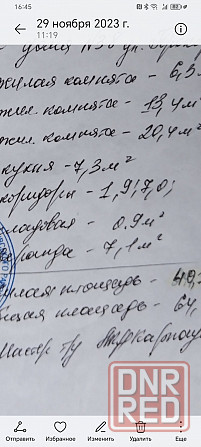 16:45
29 ноября 2023 г.
11:19
жилая комната - 6,3
жил. комната - 13,4 м²
жил. комната - 20,4 м²
кухня - 7,3 м²
коридоры - 1,9; 7,0;
кладовая - 0.9 м²
веранда - 7,1 м²
жилая площадь -
площадь - 64,
Мастер
DNR
RED
Отправить
Избранное
Изменить
Удалить
Еще